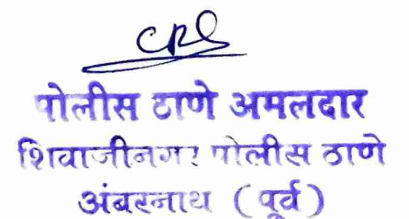 पोलीस ठाणे अमलदार
शिवाजीनगर पोलीस ठाणे
अंबरनाथ (पूर्व)